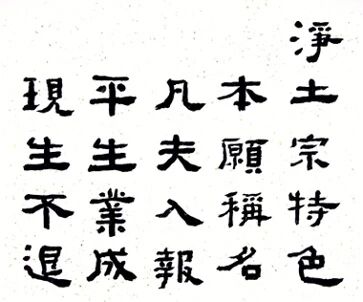 淨土宗特色
本願稱名
凡夫入報
平生業成
現生不退